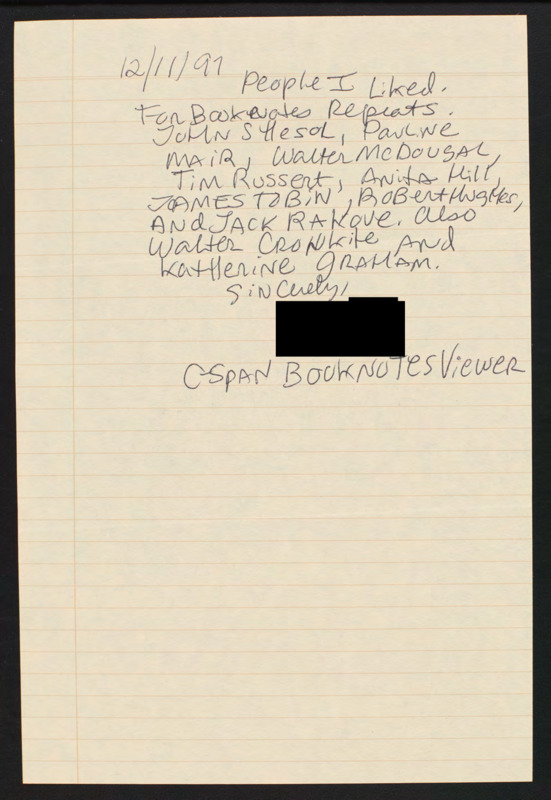 12/11/97
People I Liked.
For Booknotes Repeats.
John SHesol, Pauline
MAiR, Walter McDougal,
Tim Russert, Anita Hill,
JAMES TOBiN, RoBert Hughes,
ANd JACK RAKove. Also
Walter CRONkite ANd
Katherine GRAHAM.
SiNcerely,
C-SPAN BOOKNOTES Viewer